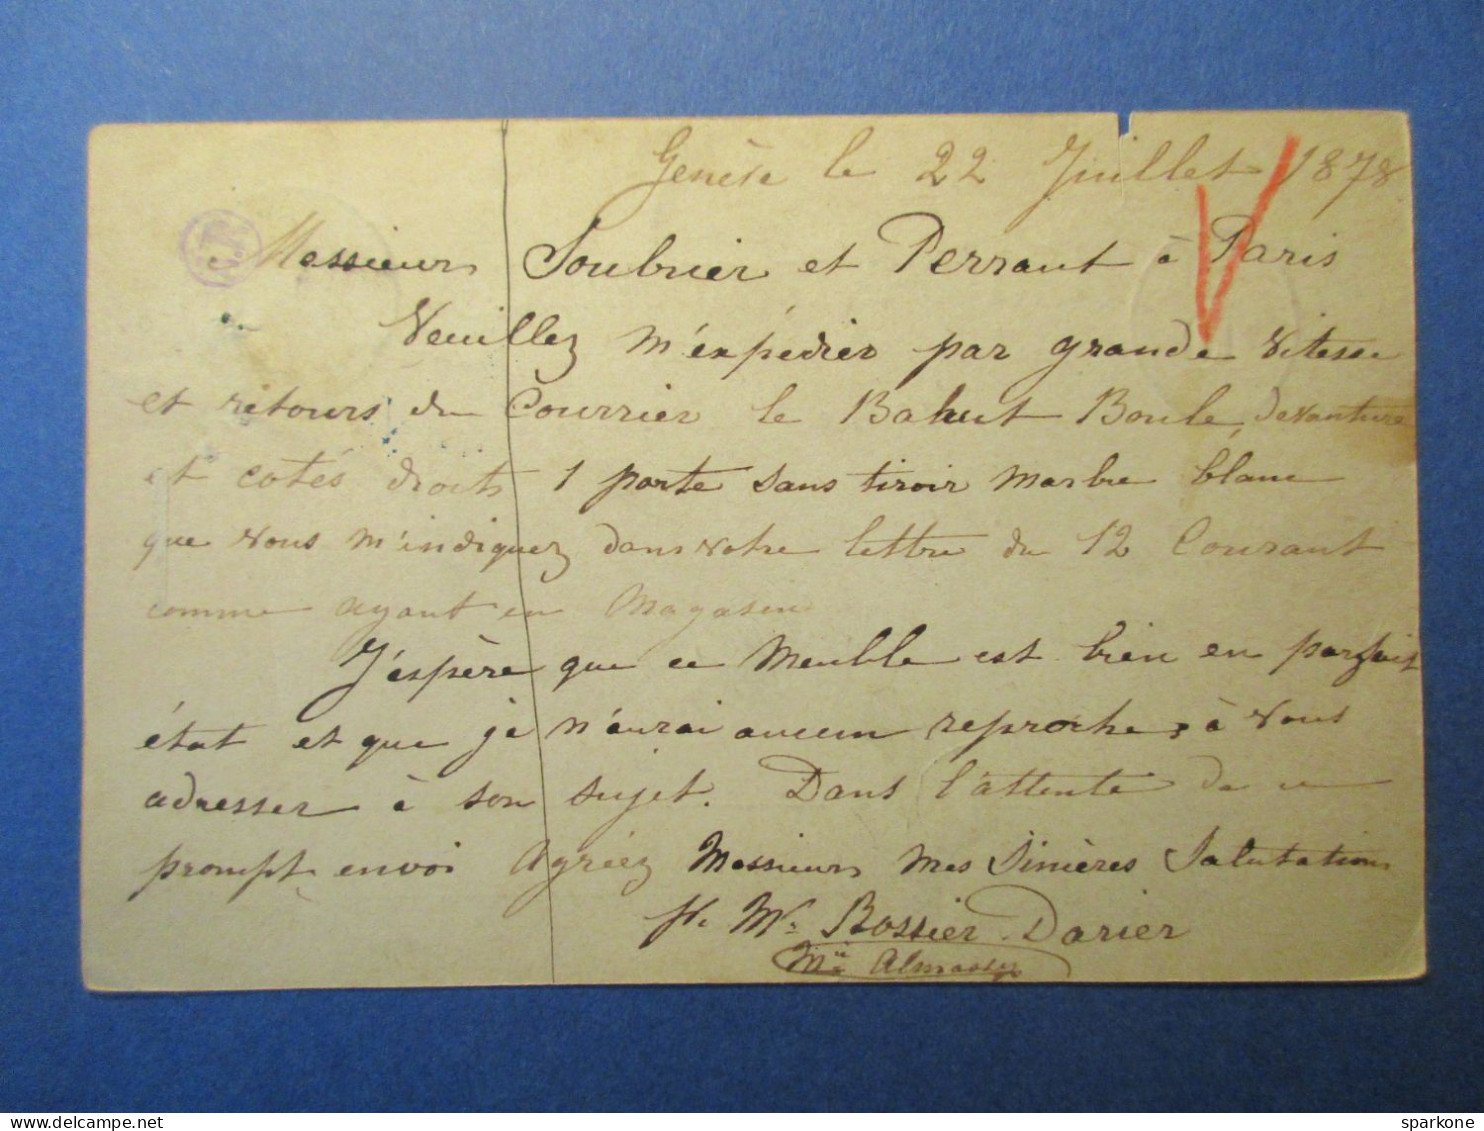 Genève le 22 Juillet 1878
Messieurs Soubrier et Perraut à Paris
Veuillez m'expédier par grande vitesse
et retours du Courrier le Bahut Boule, devanture
et cotés droits 1 porte sans tiroir marbre blanc
que vous m'indiquez dans votre lettre du 12 Courant
comme ayant en Magasin
J'espère que ce meuble est bien en parfait
état et que je n'aurai aucun reproche, à vous
adresser à son sujet. Dans l'attente de ce
prompt envoi Agréez Messieurs mes Sinières Salutations
Bossier Darier
sparkone
www.delcampe.net